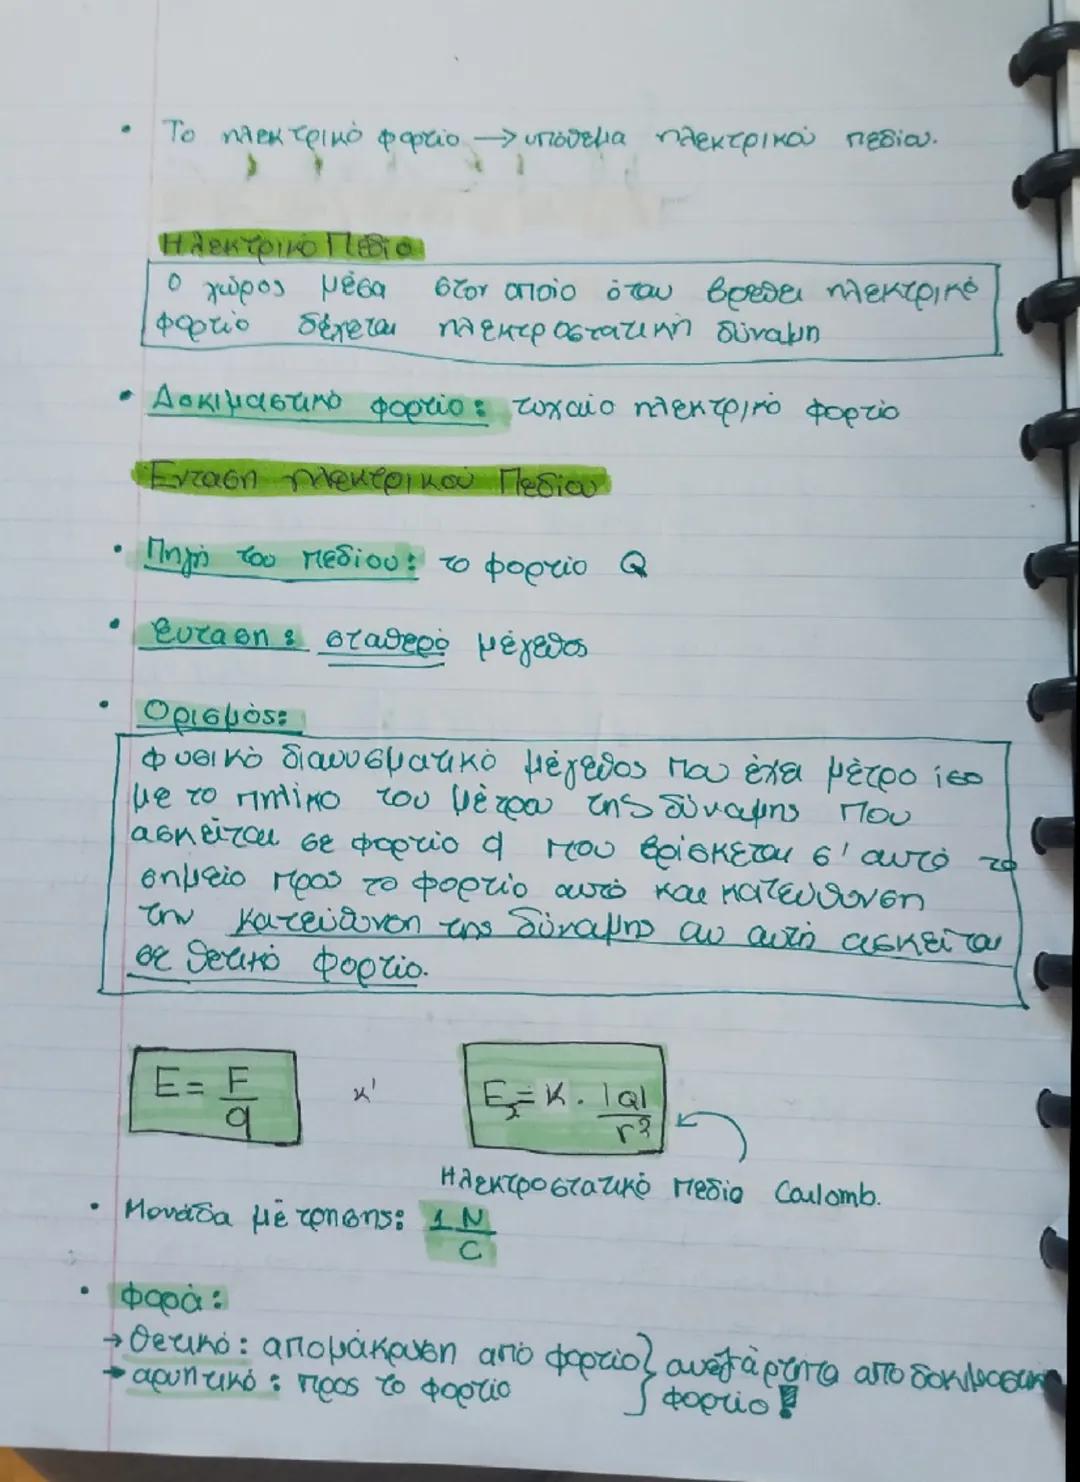 • Το ηλεκτρικό φορτίο → υπόθεμα ηλεκτρικού πεδίου.
Ηλεκτρικό Πεδίο
Ο χώρος μέσα στον οποίο όταν βρεθεί ηλεκτρικό
φορτίο δέχεται ηλεκτροστατική δύναμη
• Δοκιμαστικό φορτίο: τυχαίο ηλεκτρικό φορτίο
Ένταση ηλεκτρικού Πεδίου
• Πηγή του πεδίου: το φορτίο Q
• ένταση: σταθερό μέγεθος
• Ορισμός:
Φυσικό διανυσματικό μέγεθος που έχει μέτρο ίσο
με το πηλίκο του μέτρου της δύναμης που
ασκείται σε φορτίο q που βρίσκεται σ' αυτό το
σημείο προς το φορτίο αυτό και κατεύθυνση
την κατεύθυνση της δύναμης αν αυτή ασκείται
σε θετικό φορτίο.
E = F/q κ' E = K · |Q|/r²
Ηλεκτροστατικό πεδίο Coulomb.
• Μονάδα μέτρησης: 1 N/C
• Φορά:
→ Θετικό: απομάκρυση από φορτίο } ανεξάρτητα από δοκιμαστικό
→ αρνητικό: προς το φορτίο } φορτίο!